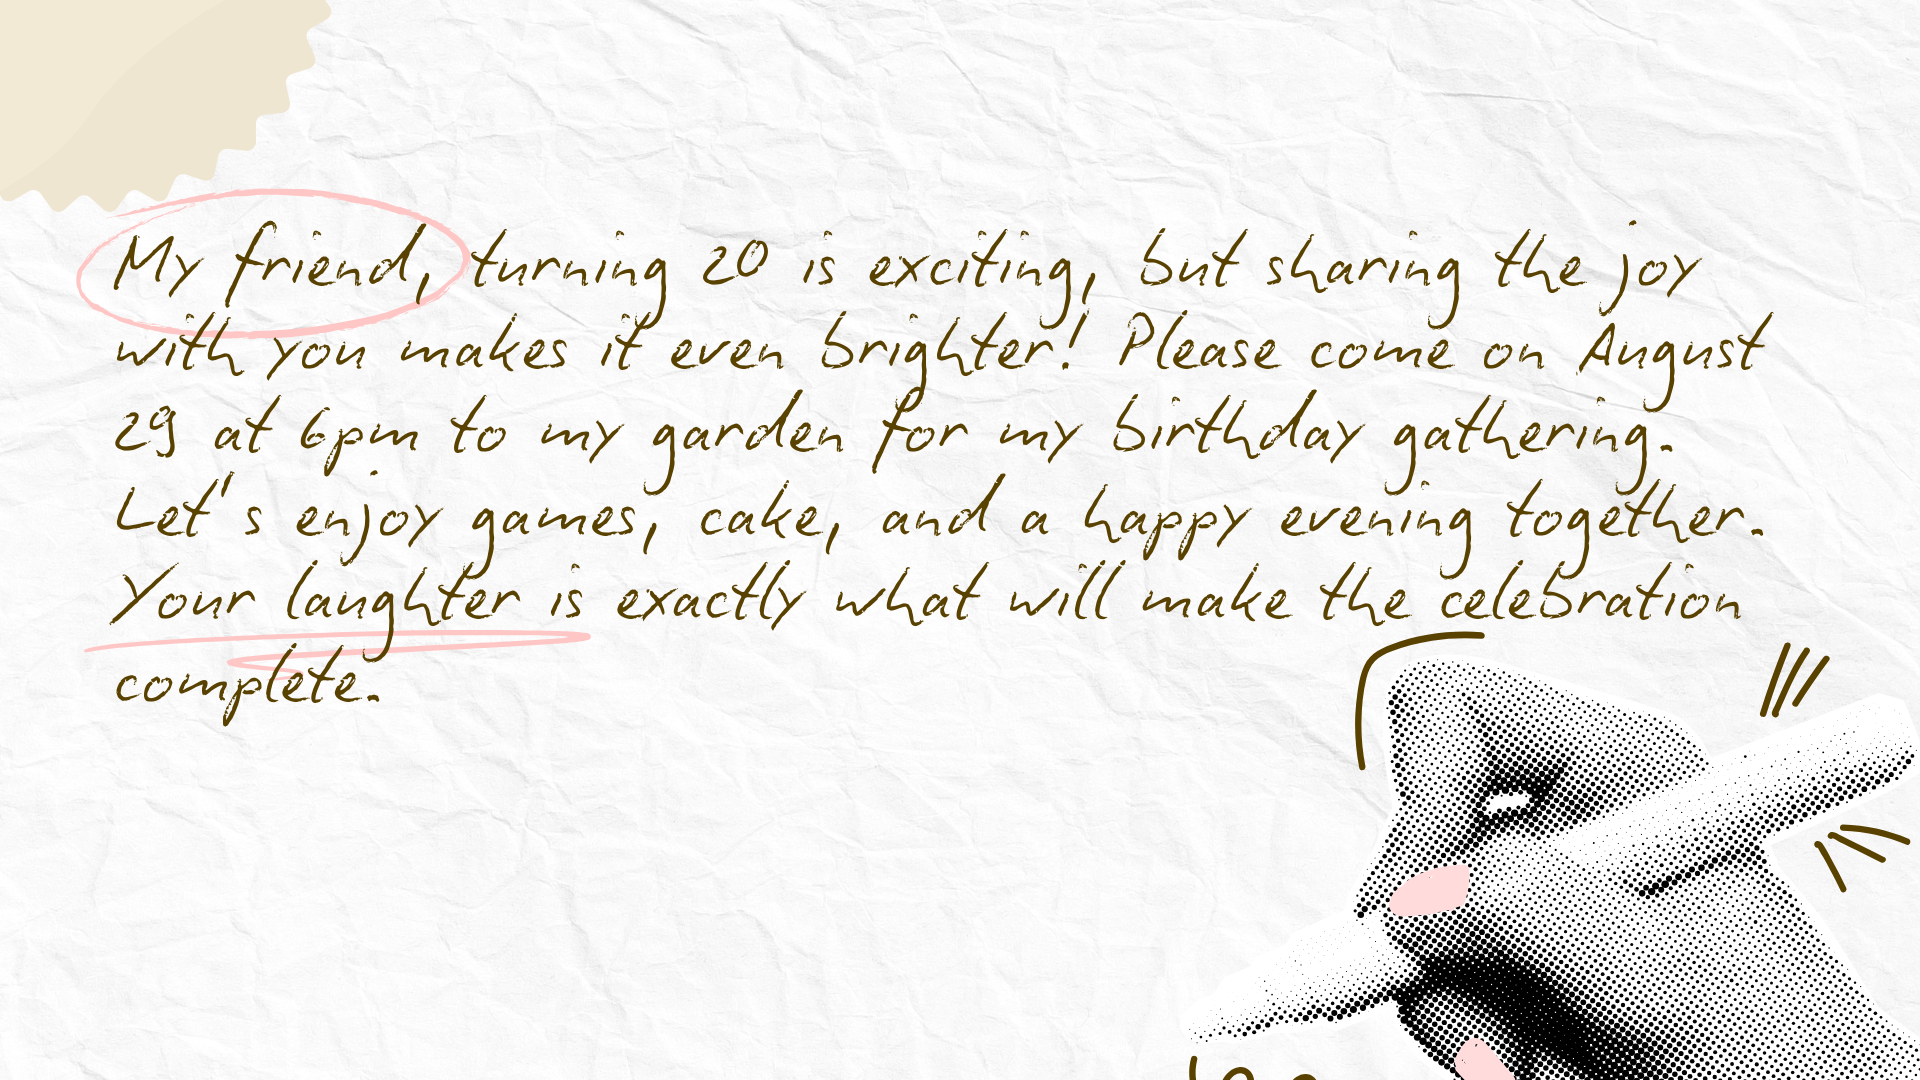 My friend, turning 20 is exciting, but sharing the joy
with you makes it even brighter! Please come on August
29 at 6pm to my garden for my birthday gathering.
Let's enjoy games, cake, and a happy evening together.
Your laughter is exactly what will make the celebration
complete.